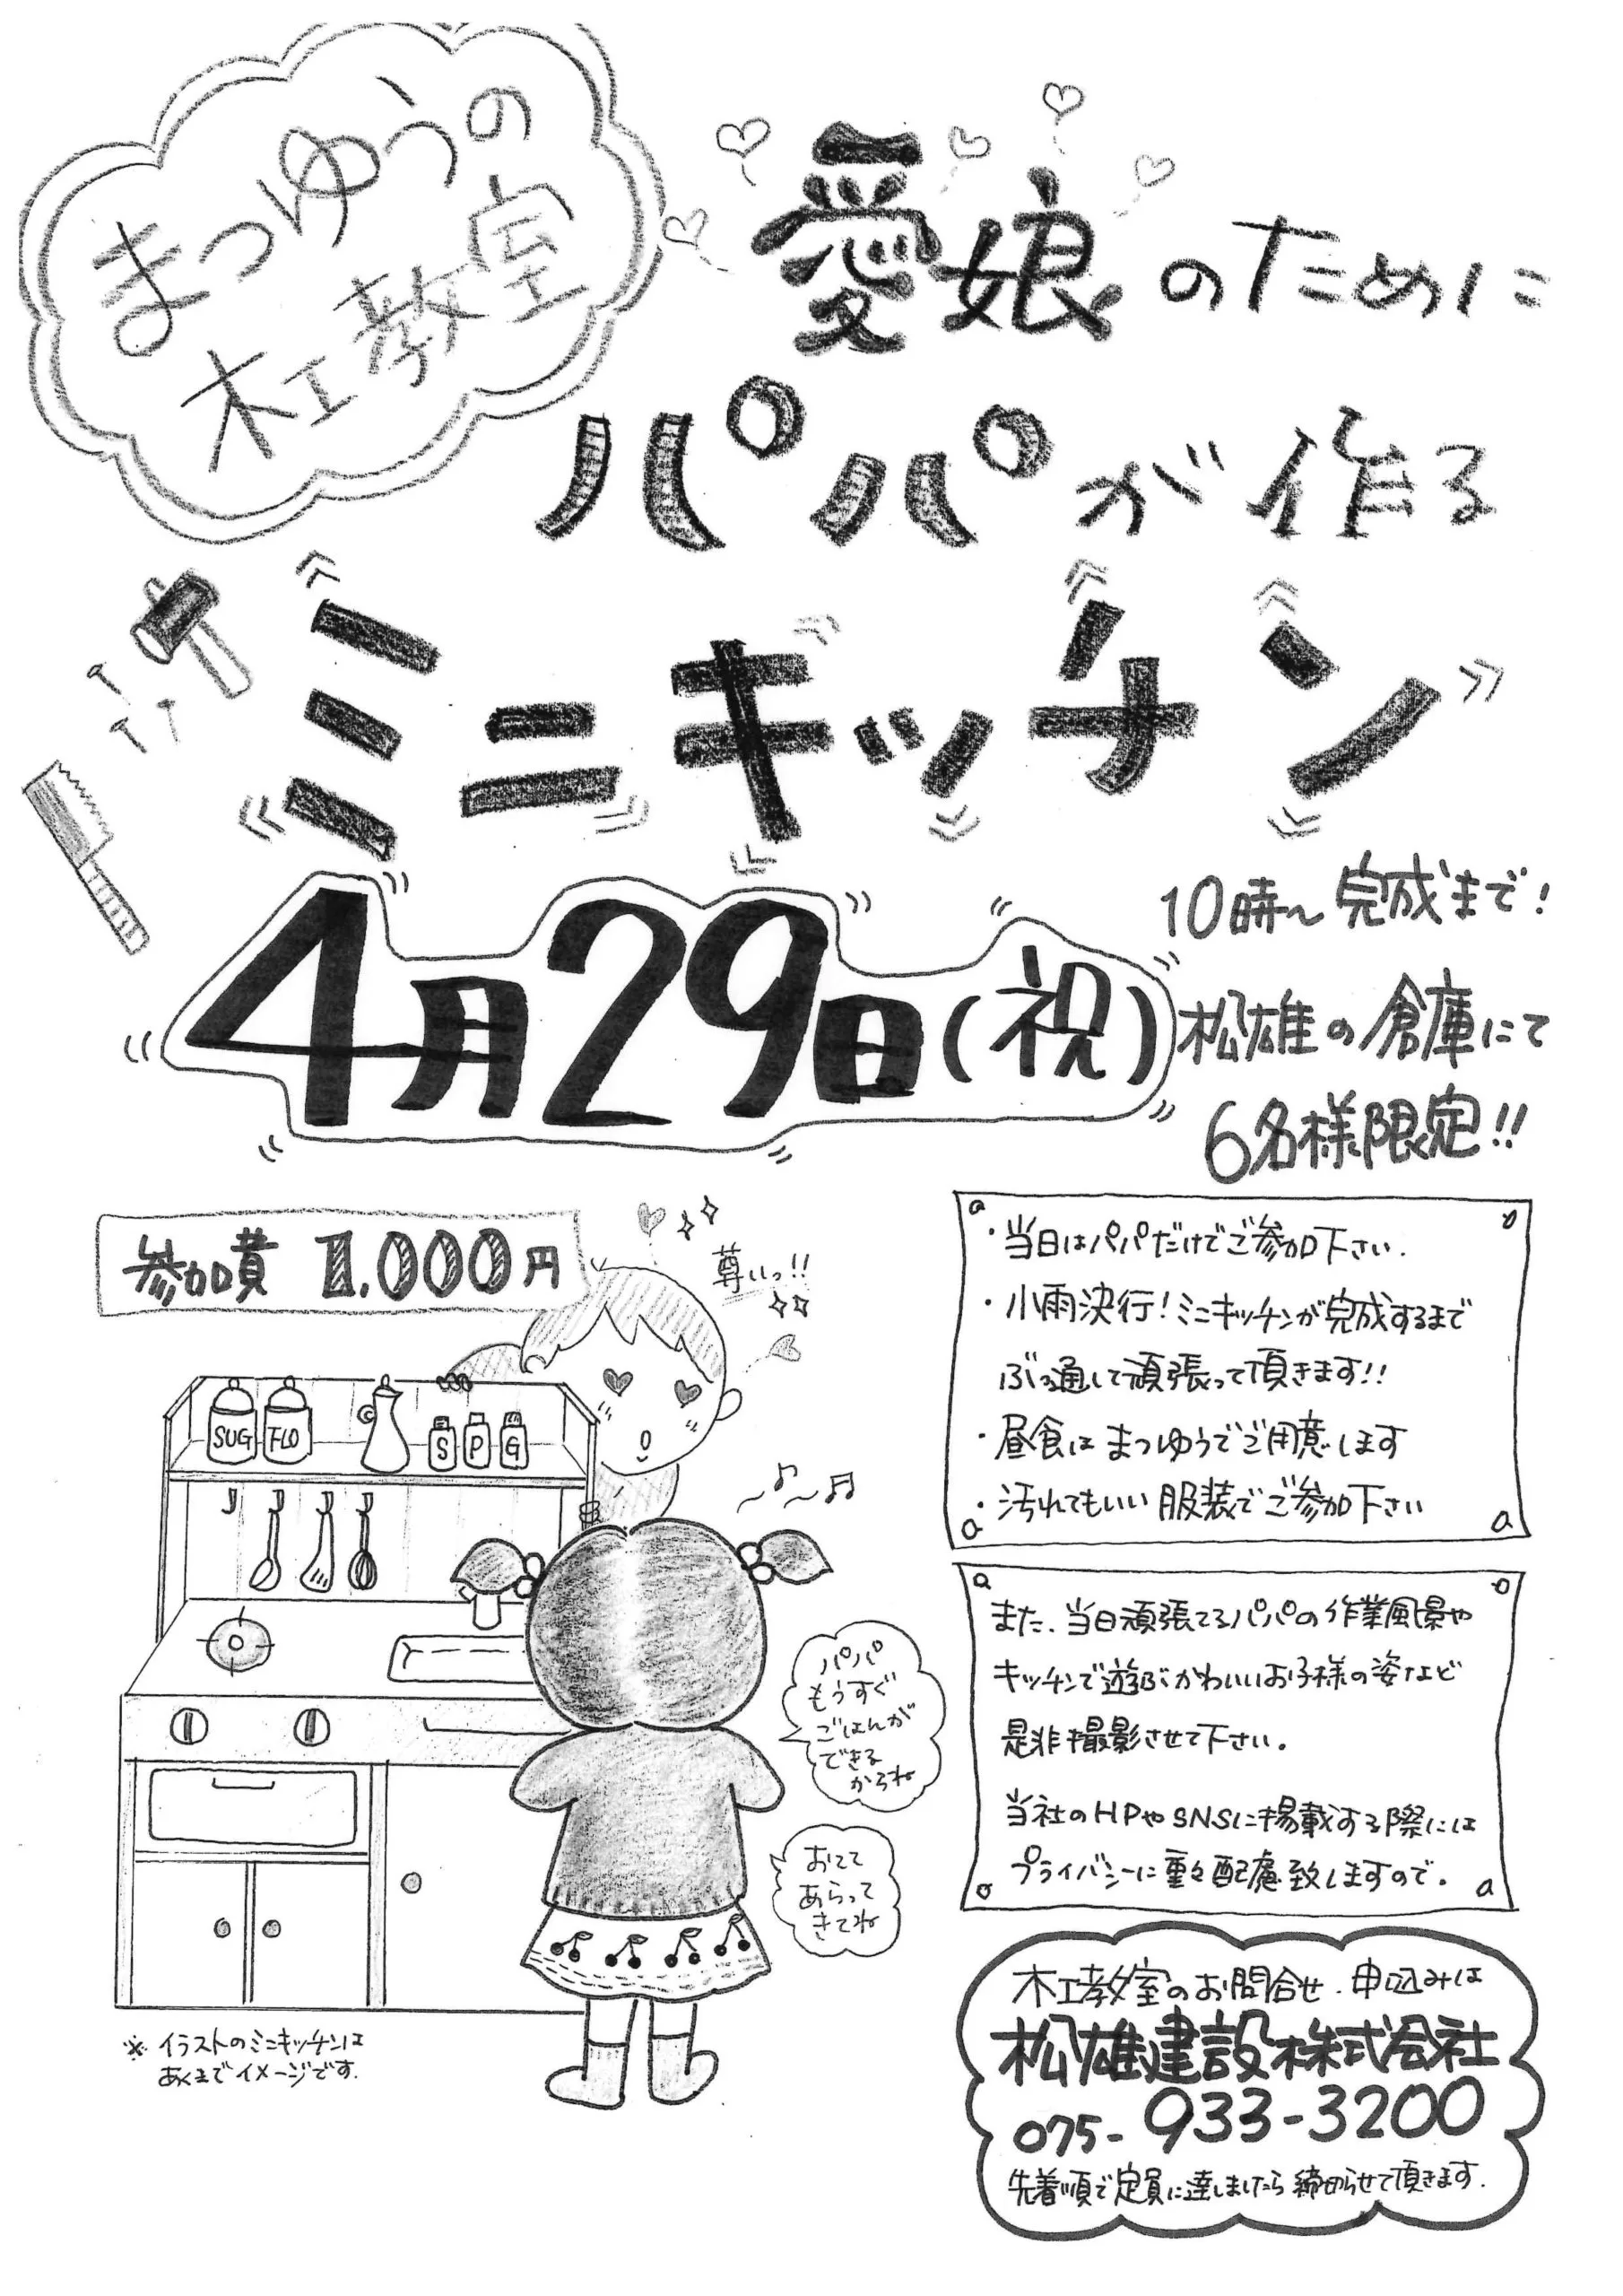 まつゆうの
木工教室
愛娘のために
パパが作る
ミニキッチン
4月29日(祝)
10時〜完成まで!
松雄の倉庫にて
6名様限定!!
参加費 1.000円
尊いっ!!
SUG
FLO
S
P
G
パパ
もうすぐ
ごはんが
できる
からね
おてて
あらって
きてね
※イラストのミニキッチンは
あくまでイメージです.
・当日はパパだけでご参加下さい.
・小雨決行!ミニキッチンが完成するまで
ぶっ通して頑張って頂きます!!
・昼食はまつゆうでご用意します
・汚れてもいい服装でご参加下さい
また、当日頑張てるパパの作業風景や
キッチンで遊ぶかわいいお子様の姿など
是非撮影させて下さい。
当社のHPやSNSに掲載する際には
プライバシーに重々配慮致しますので。
木工教室のお問合せ、申込みは
松雄建設株式会社
075-933-3200
先着順で定員に達しましたら締切らせて頂きます.